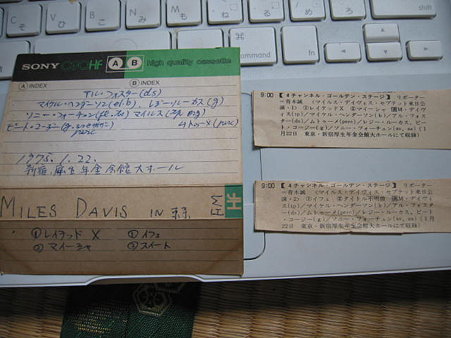 control
SONY C90HF A B high quality cassette
A INDEX B INDEX
アル・フォスター (ds)
マイケル・ヘンダーソン (el.b), レジー・ルーカス (g)
ソニー・フォーチュン マイルス
ピート・コージー
1975.1.22.
新宿厚生年金会館大ホール
MILES DAVIS IN 東京 FM
① レイテッド X ① イフェ
② マイーシャ ② スイート
9:00 【4チャンネル・ゴールデン・ステージ】 リポーター
ー青木誠 《マイルス・デイヴィス・セプテット来日公
演・1》①レイテッドX ②マイーシャ 演M・デイヴィ
ス(tp)/マイケル・ヘンダーソン(b)/アル・フォスタ
ー(ds)/ムトゥーメ(perc)/レジー・ルーカス、ピー
ト・コージー(g)/ソニー・フォーチュン
月22日 東京・新宿厚生年金会館大ホールにて収録)
9:00 【4チャンネル・ゴールデン・ステージ】 リポーター
ー青木誠 《マイルス・デイヴィス・セプテット来日公
演・2》①イフェ ②タイトル不明曲 演M・デイヴィス
(tp)/マイケル・ヘンダーソン(b)/アル・フォスター
(ds)/ムトゥーメ(perc)/レジー・ルーカス、ピート・
コージー(g)/ソニー・フォーチュン
22日 東京・新宿厚生年金会館大ホールにて収録)